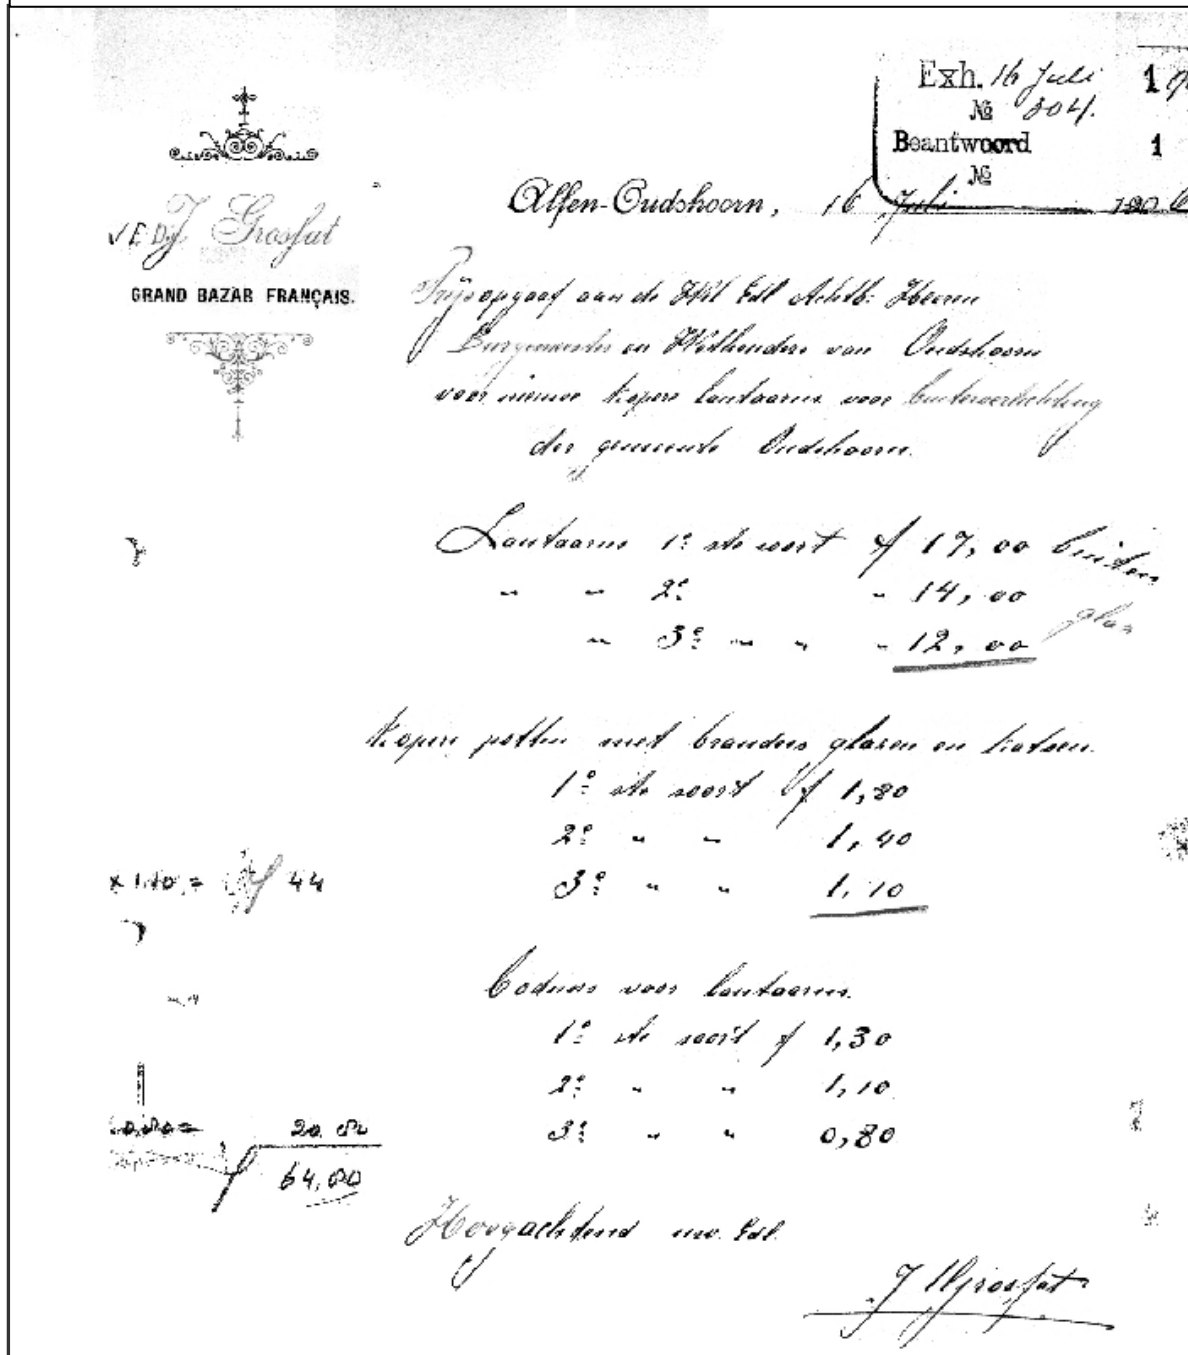 Exh. 16 Juli 1
№ 304.
Beantwoord 1
№
Alfen-Oudshoorn, 16 Juli 1906
J. Grosfat
GRAND BAZAR FRANÇAIS.
Prijsopgaaf aan de Wel Edl Achtb: Heeren
Burgemeester en Wethouders van Oudshoorn
voor nieuwe koperen lantaarns voor buitenverlichting
der gemeente Oudshoorn.
Lantaarns 1e ste soort f 17,00 buiten
" " 2e " 14,00 glas
" 3e " " " 12,00
Koperen potten met branders glazen en katoen.
1e ste soort f 1,80
2e " " 1,40
3e " " 1,10
x 1.10 = f 44
Bodems voor lantaarns.
1e ste soort f 1,30
2e " " 1,10
3e " " 0,80
f 64,80
Hoogachtend uw. Edl.
J Grosfat